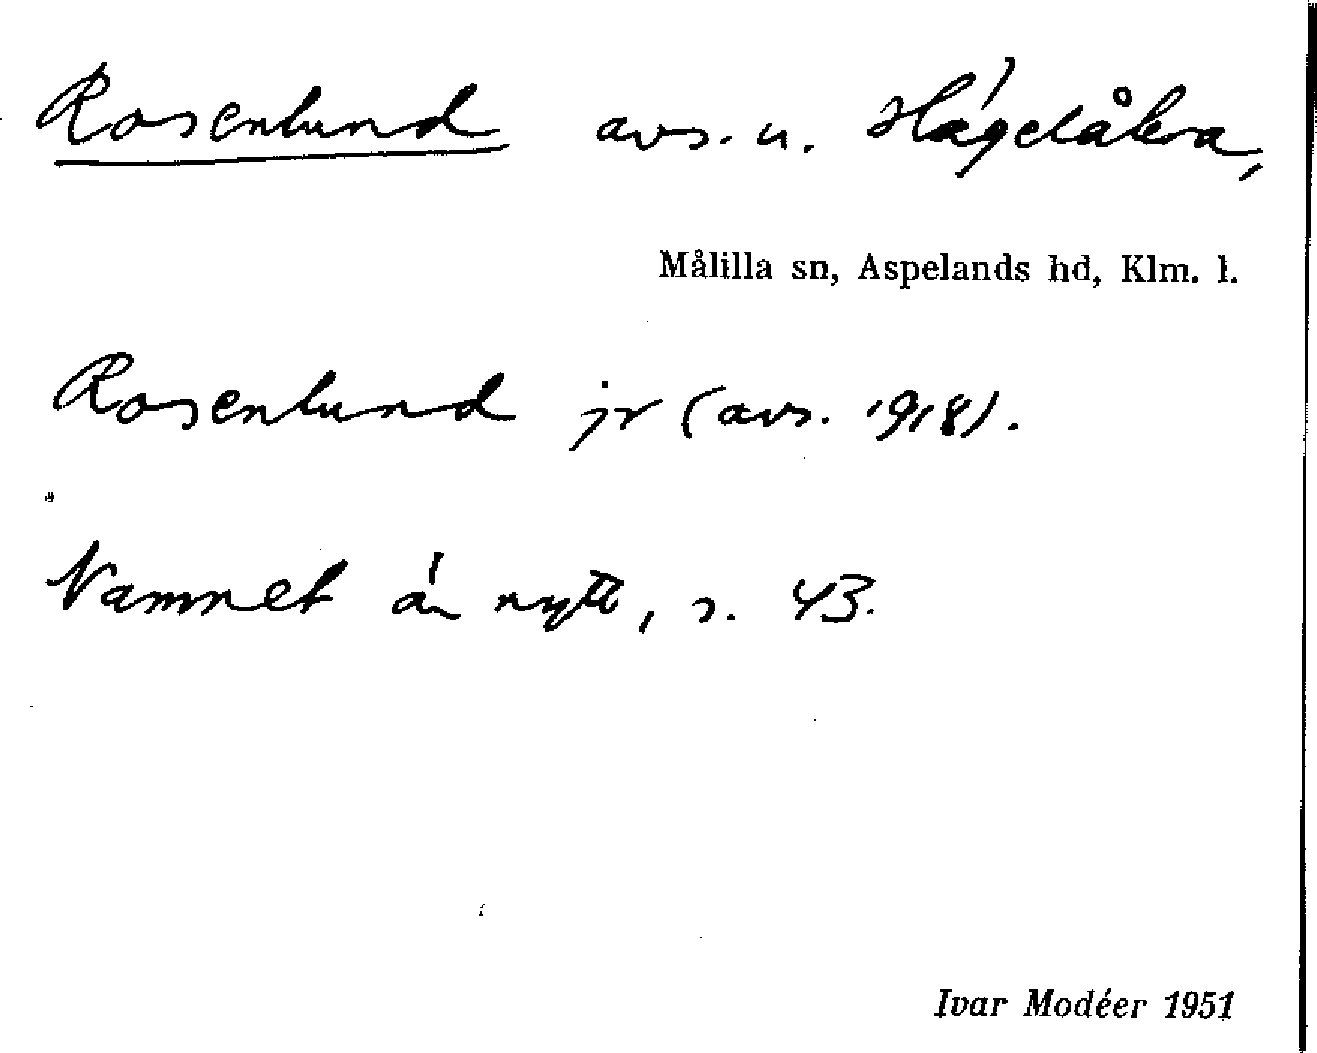 Rosenlund avs. u. Hägelåkra,
Målilla sn, Aspelands hd, Klm. l.
Rosenlund jr (avs. 1918).
Namnet är nytt, s. 43.
Ivar Modéer 1951